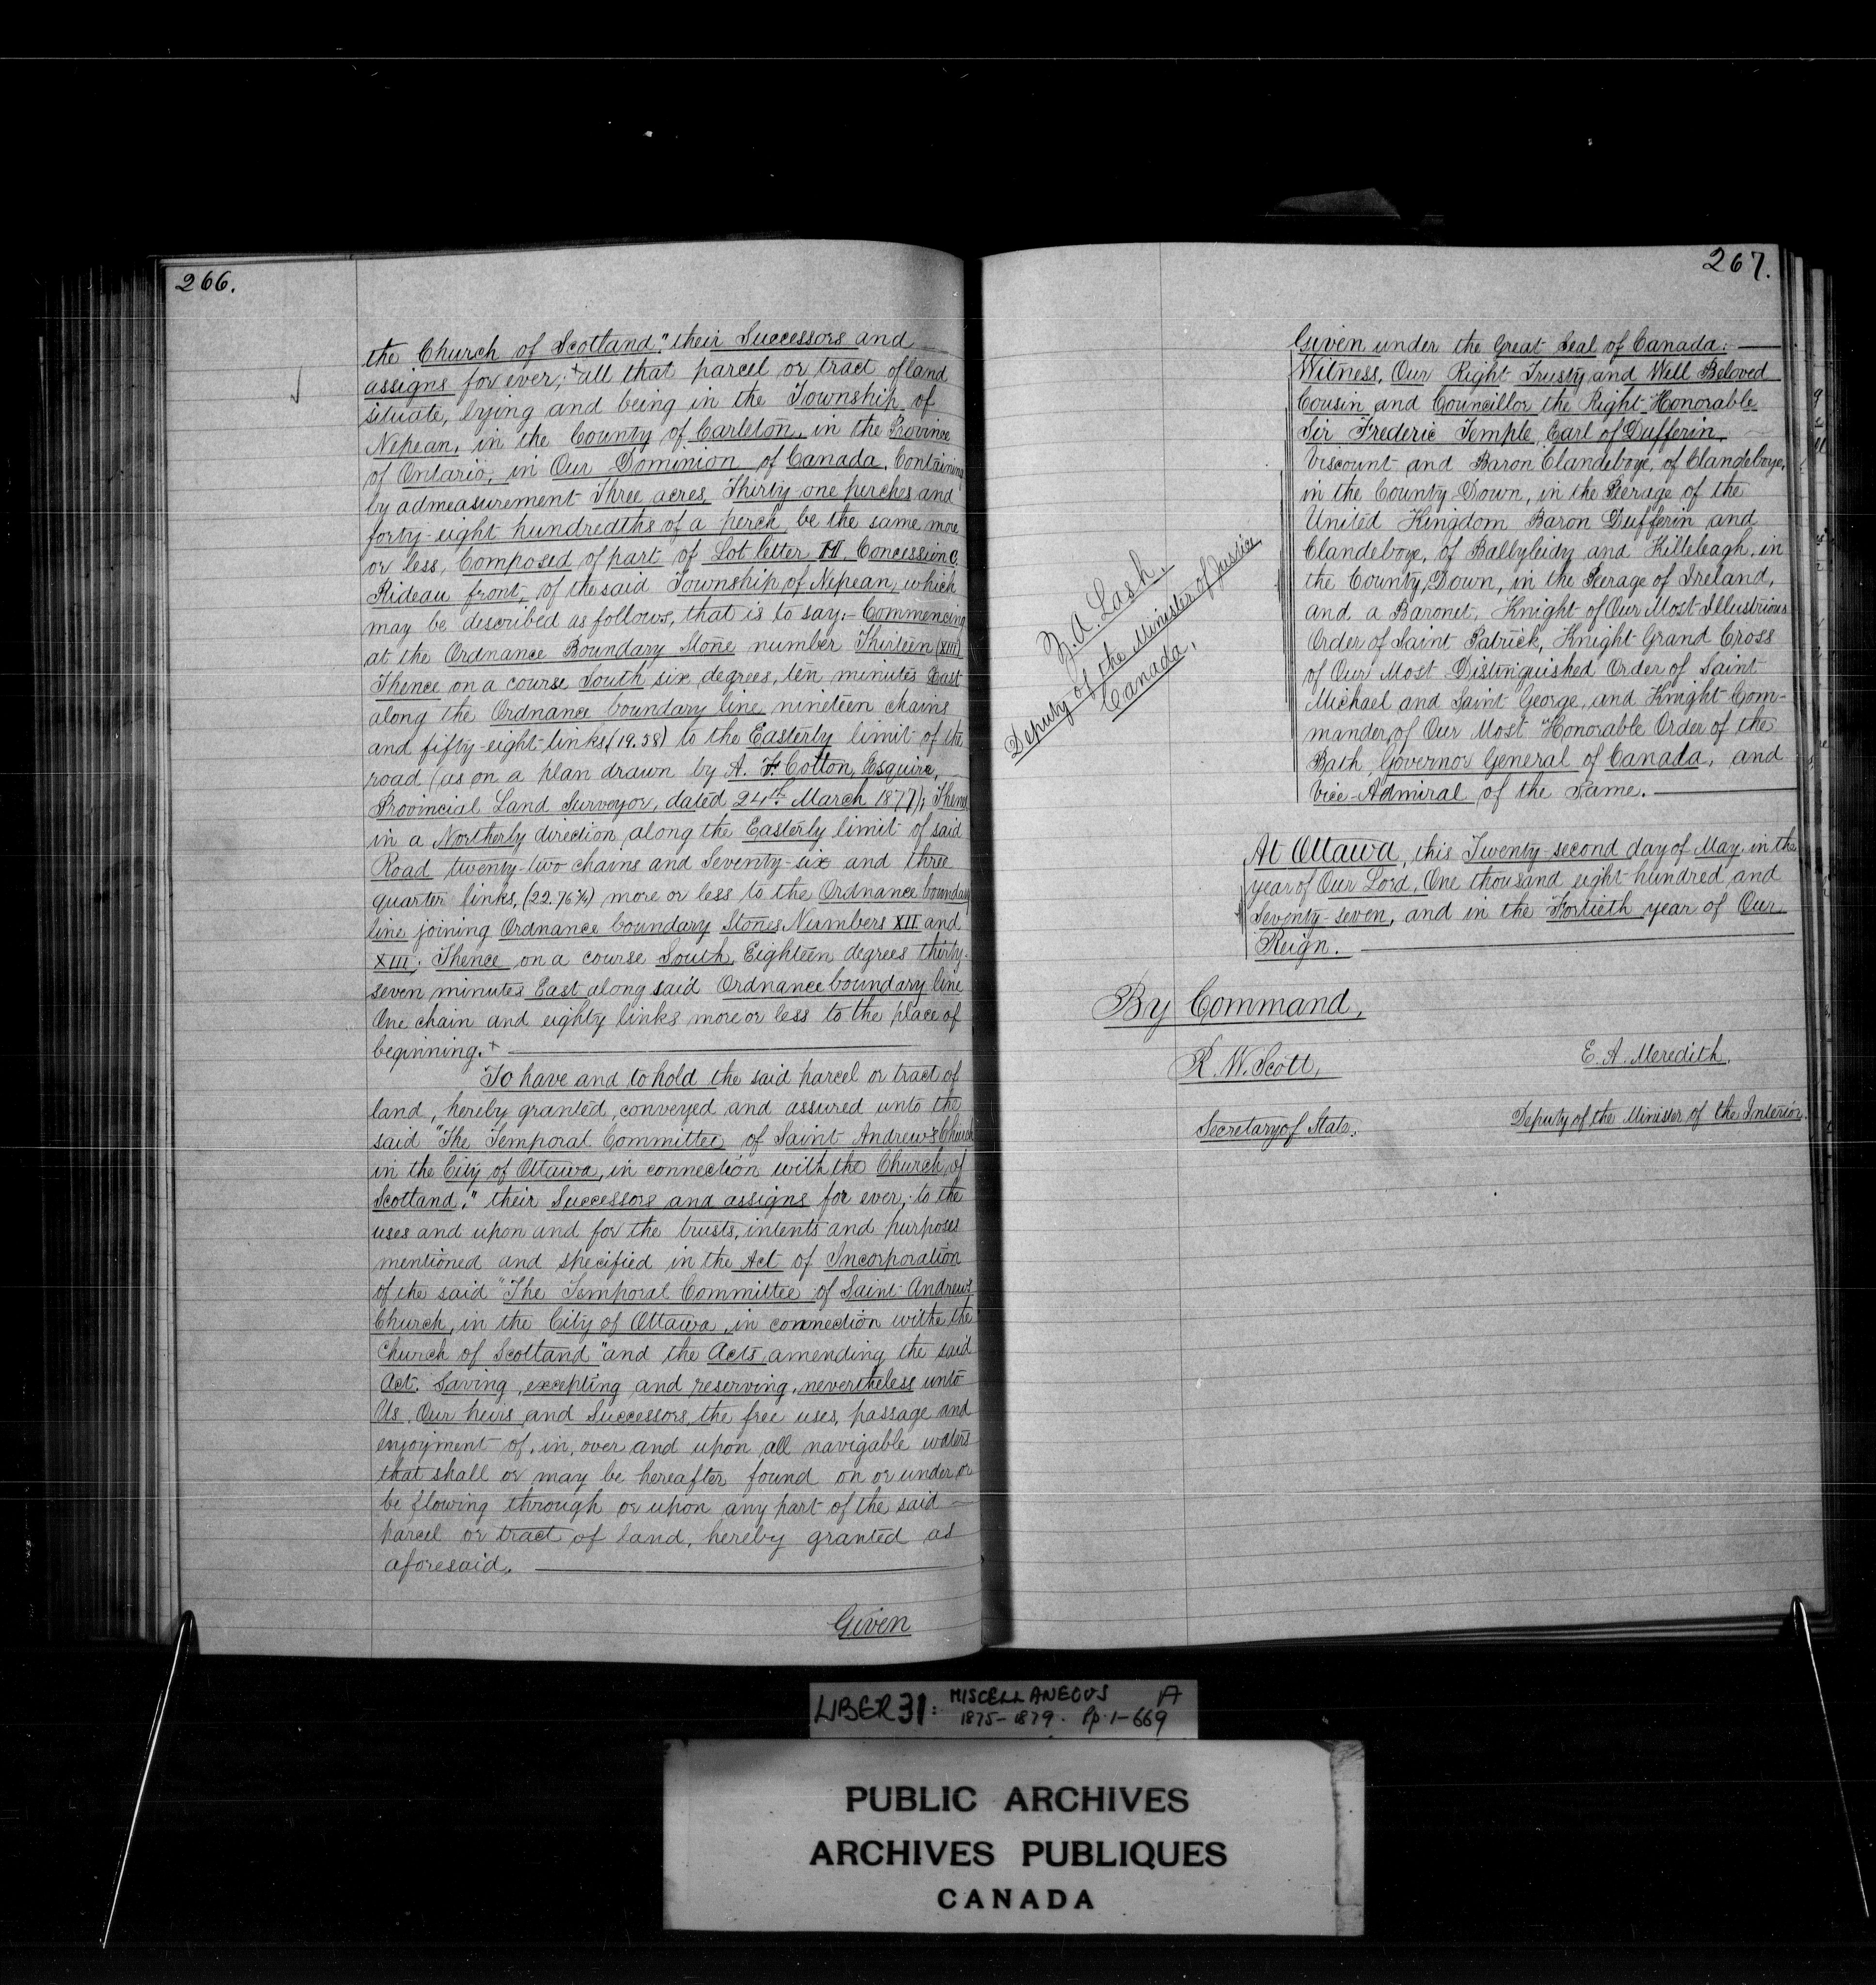 266.
the Church of Scotland," their Successors and
assigns for ever, all that parcel or tract of land
situate, lying and being in the Township of
Nepean, in the County of Carleton, in the Province
of Ontario, in Our Dominion of Canada, Containing
by admeasurement Three acres, Thirty one perches and
forty-eight hundredths of a perch, be the same more
or less, Composed of part of Lot letter H Concession C.
Rideau front, of the said Township of Nepean, which
may be described as follows, that is to say:- Commencing
at the Ordnance Boundary Stone number Thirteen (XIII)
Thence on a course South six degrees, ten minutes East
along the Ordnance boundary line nineteen chains
and fifty-eight links (19.58) to the Easterly limit of the
road (as on a plan drawn by A. F. Cotton, Esquire,
Provincial Land Surveyor, dated 24th March 1877); Thence
in a Northerly direction along the Easterly limit of said
Road twenty-two chains and Seventy-six and three
quarter links, (22.76¾) more or less to the Ordnance boundary
line joining Ordnance boundary Stones Numbers XII and
XIII; Thence on a course South, Eighteen degrees thirty-
seven minutes East along said Ordnance boundary line
One chain and eighty links more or less to the place of
beginning.
To have and to hold the said parcel or tract of
land, hereby granted, conveyed and assured unto the
said "The Temporal Committee of Saint Andrew's Church
in the City of Ottawa, in connection with the Church of
Scotland," their Successors and assigns for ever, to the
uses and upon and for the trusts, intents and purposes
mentioned and specified in the Act of Incorporation
of the said "The Temporal Committee of Saint Andrew's
Church, in the City of Ottawa, in connection withe the
Church of Scotland" and the Acts amending the said
Act. Saving, excepting and reserving, nevertheless unto
Us, Our heirs and Successors, the free uses, passage and
enjoyment of, in, over and upon all navigable waters
that shall or may be hereafter found on or under, or
be flowing through or upon any part of the said
parcel or tract of land, hereby granted as
aforesaid.
Given
267.
Given under the Great Seal of Canada:
Witness, Our Right Trusty and Well Beloved
Cousin and Councillor the Right Honorable
Sir Frederic Temple, Earl of Dufferin,
Viscount and Baron Clandeboye, of Clandeboye,
in the County Down, in the Peerage of the
United Kingdom Baron Dufferin and
Clandeboye, of Ballyleidy and Killeleagh, in
the County Down, in the Peerage of Ireland,
and a Baronet, Knight of Our Most Illustrious
Order of Saint Patrick, Knight Grand Cross
of Our Most Distinguished Order of Saint
Michael and Saint George, and Knight Com-
mander of Our Most Honorable Order of the
Bath, Governor General of Canada, and
Vice-Admiral of the Same.
Z. A. Lash,
Deputy of the Minister of Justice
Canada.
At Ottawa, this Twenty-second day of May, in the
year of Our Lord, One thousand eight hundred and
Seventy-seven, and in the Fortieth year of Our
Reign.
By Command,
R. W. Scott,
Secretary of State.
E. A. Meredith,
Deputy of the Minister of the Interior.
LIBER 31: MISCELLANEOUS A
1875-1879. Pp. 1-669
PUBLIC ARCHIVES
ARCHIVES PUBLIQUES
CANADA